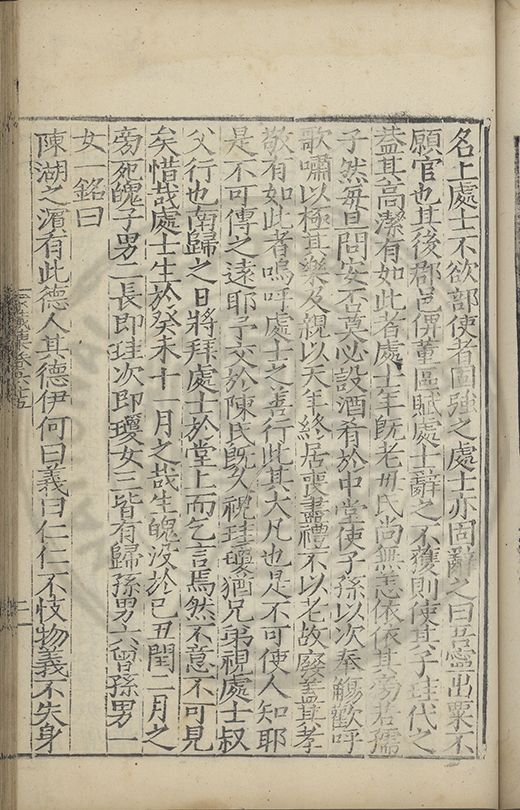 名上處士不欲部使者固強之處士亦固辭之曰吾寧出粟不
願官也其後郡邑俾董區賦處士辭之不獲則使其子珪代之
葢其高潔有如此者處士年旣老毋氏尚無恙依依其旁若孺
子然每旦問安否莫必設酒肴於中堂使子孫以次奉觴歡呼
歌嘯以極其樂及親以天年終居喪盡禮不以老故廢葢其孝
敬有如此者嗚呼處士之善行此其大凡也是不可使人知耶
是不可傳之遠耶予交於陳氏旣久視珪瓊猶兄弟視處士叔
父行也南歸之日將拜處士於堂上而乞言焉然不意不可見
矣惜哉處士生於癸未十一月之哉生魄沒於己丑閏二月之
旁死魄子男二長即珪次即瓊女三皆有歸孫男六曾孫男一
女一銘曰
陳湖之濵有此德人其德伊何曰義曰仁仁不忮物義不失身